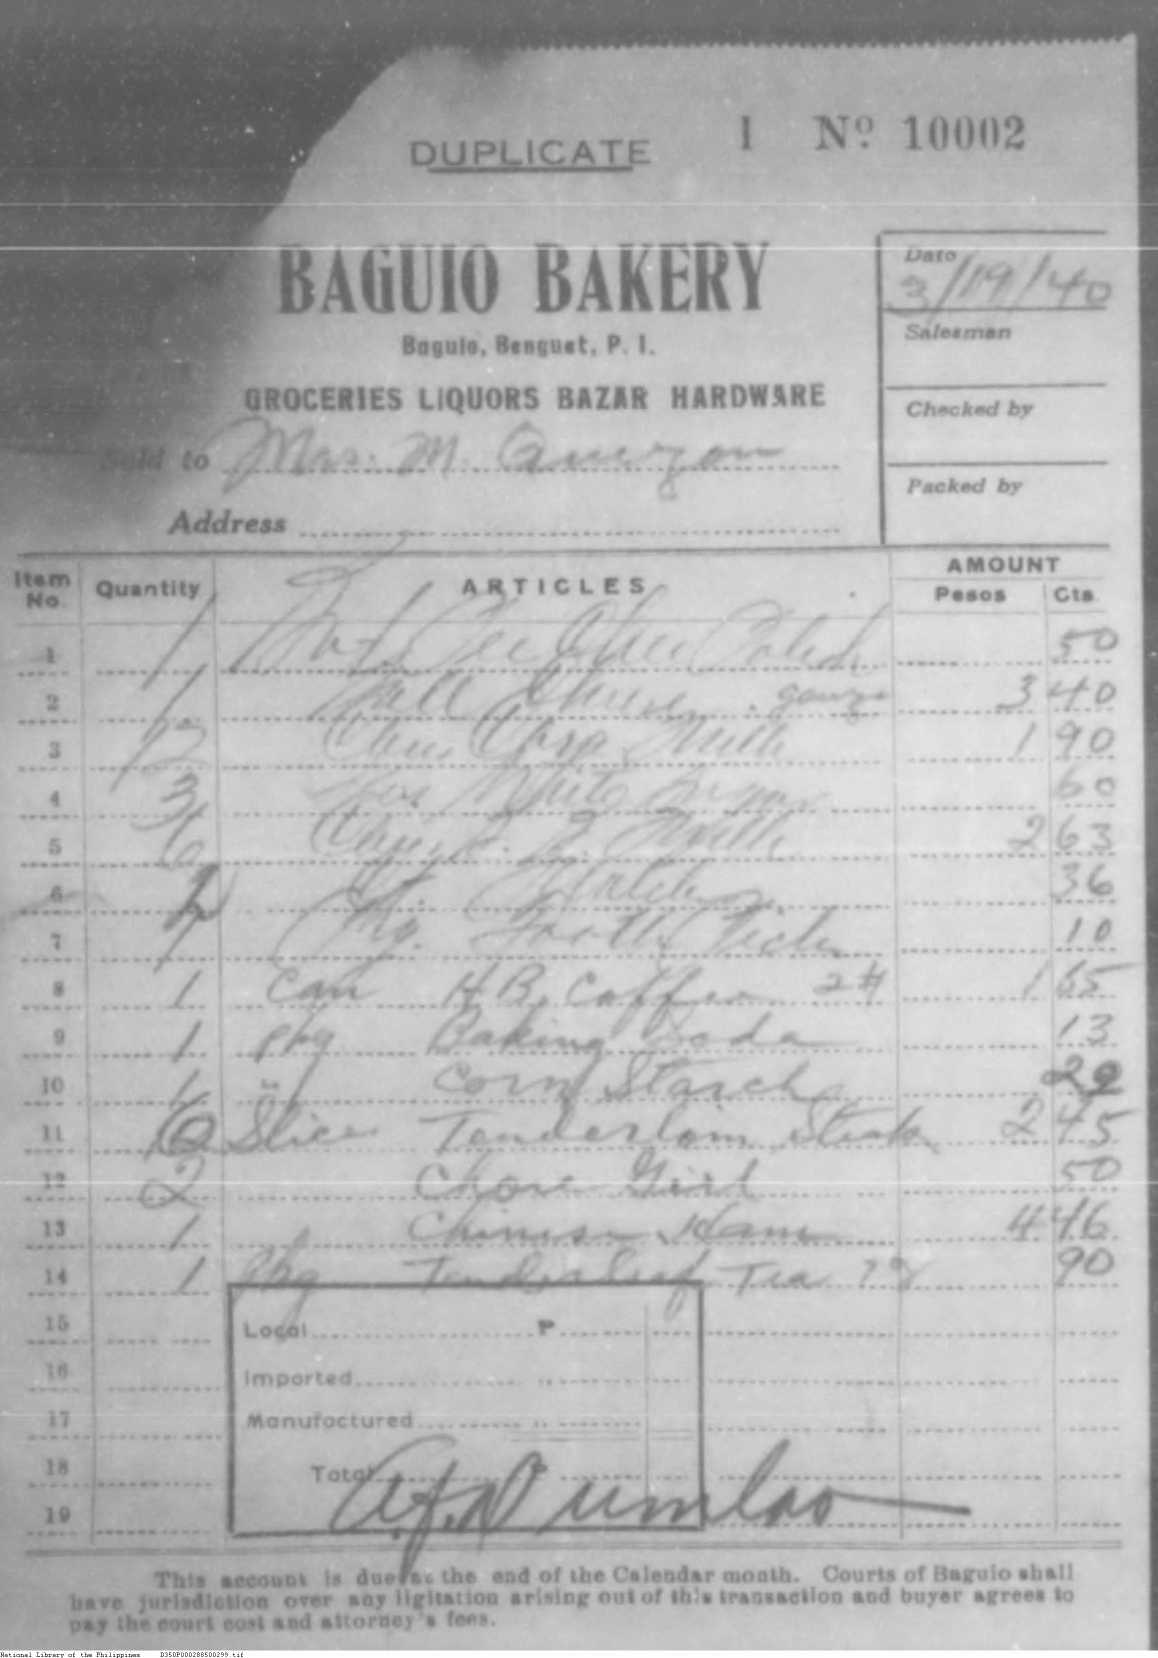 DUPLICATE I Nº 10002
BAGUIO BAKERY
Baguio, Benguet, P. I.
GROCERIES LIQUORS BAZAR HARDWARE
Date 3/19/40
Salesman
Checked by
Packed by
Sold to Mrs. M. Quezon
Address
Item No. Quantity ARTICLES AMOUNT Pesos Cts.
1 1 50
2 1 3 40
3 12 Milk 1 90
4 3 White 60
5 6 Milk 2 63
6 2 36
7 1 Pkg. Tooth Picks 10
8 1 Can H.B. Coffee 2# 1 65
9 1 pkg Baking Soda 13
10 1 " Corn Starch
11 6 Slice Tenderloin Steak 2 45
12 2 Chore Girl 50
13 1 Chinese Ham 4 46
14 1 Pkg Tenderleaf Tea 90
15 Local P
16 Imported "
17 Manufactured "
18 Total P
19
This account is due at the end of the Calendar month. Courts of Baguio shall
have jurisdiction over any ligitation arising out of this transaction and buyer agrees to
pay the court cost and attorney's fees.
National Library of the Philippines D350P000288500299.tif